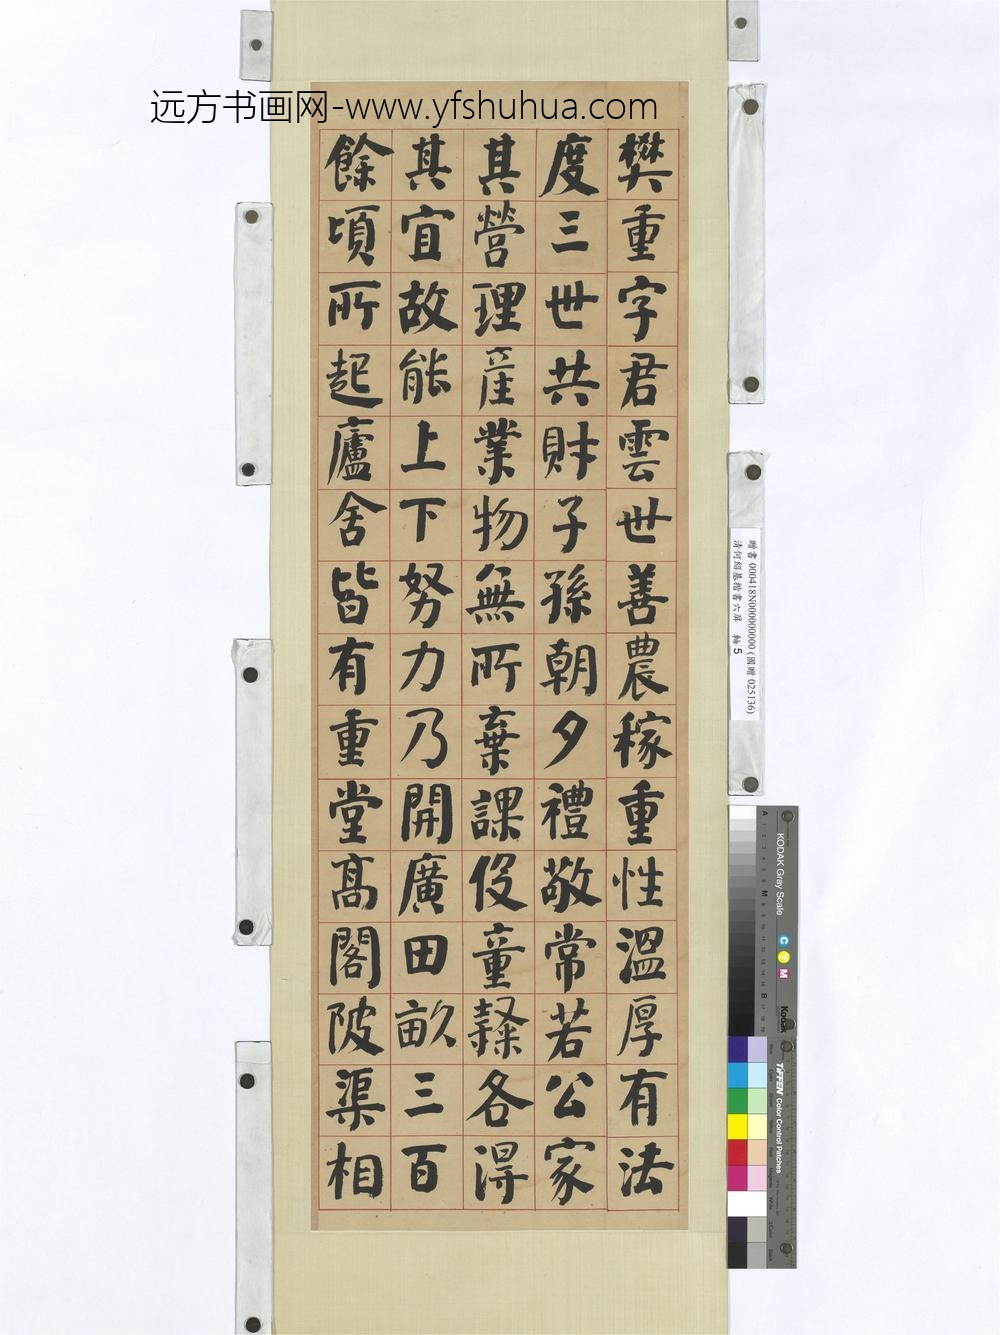 远方书画网-www.yfshuhua.com
樊重字君雲世善農稼重性溫厚有法
度三世共財子孫朝夕禮敬常若公家
其營理產業物無所棄課役童隸各得
其宜故能上下努力乃開廣田畝三百
餘頃所起廬舍皆有重堂高閣陂渠相
贈書 000418N000000000 (國贈 025136)
清何紹基楷書六屏 軸 5
KODAK Gray Scale
C Y M
Kodak
TIFFEN Color Control Patches